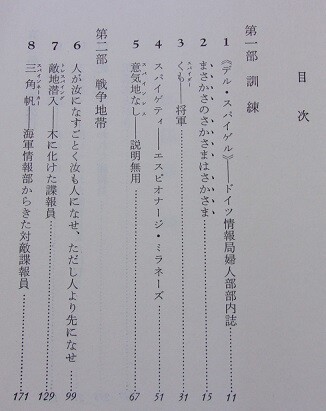 目次
第一部 訓練
1 《デル・スパイゲル》——ドイツ情報局婦人部部内誌……11
2 まさかさのさかさまはさかさま……15
3 くも——将軍……31
4 スパイゲティ——エスピオナージ・ミラネーズ……51
5 意気地なし——説明無用……67
第二部 戦争地帯
6 人が汝になすごとく汝も人になせ、ただし人より先になせ……99
7 敵地潜入——木に化けた諜報員……129
8 三角帆——海軍情報部からきた対敵諜報員……171